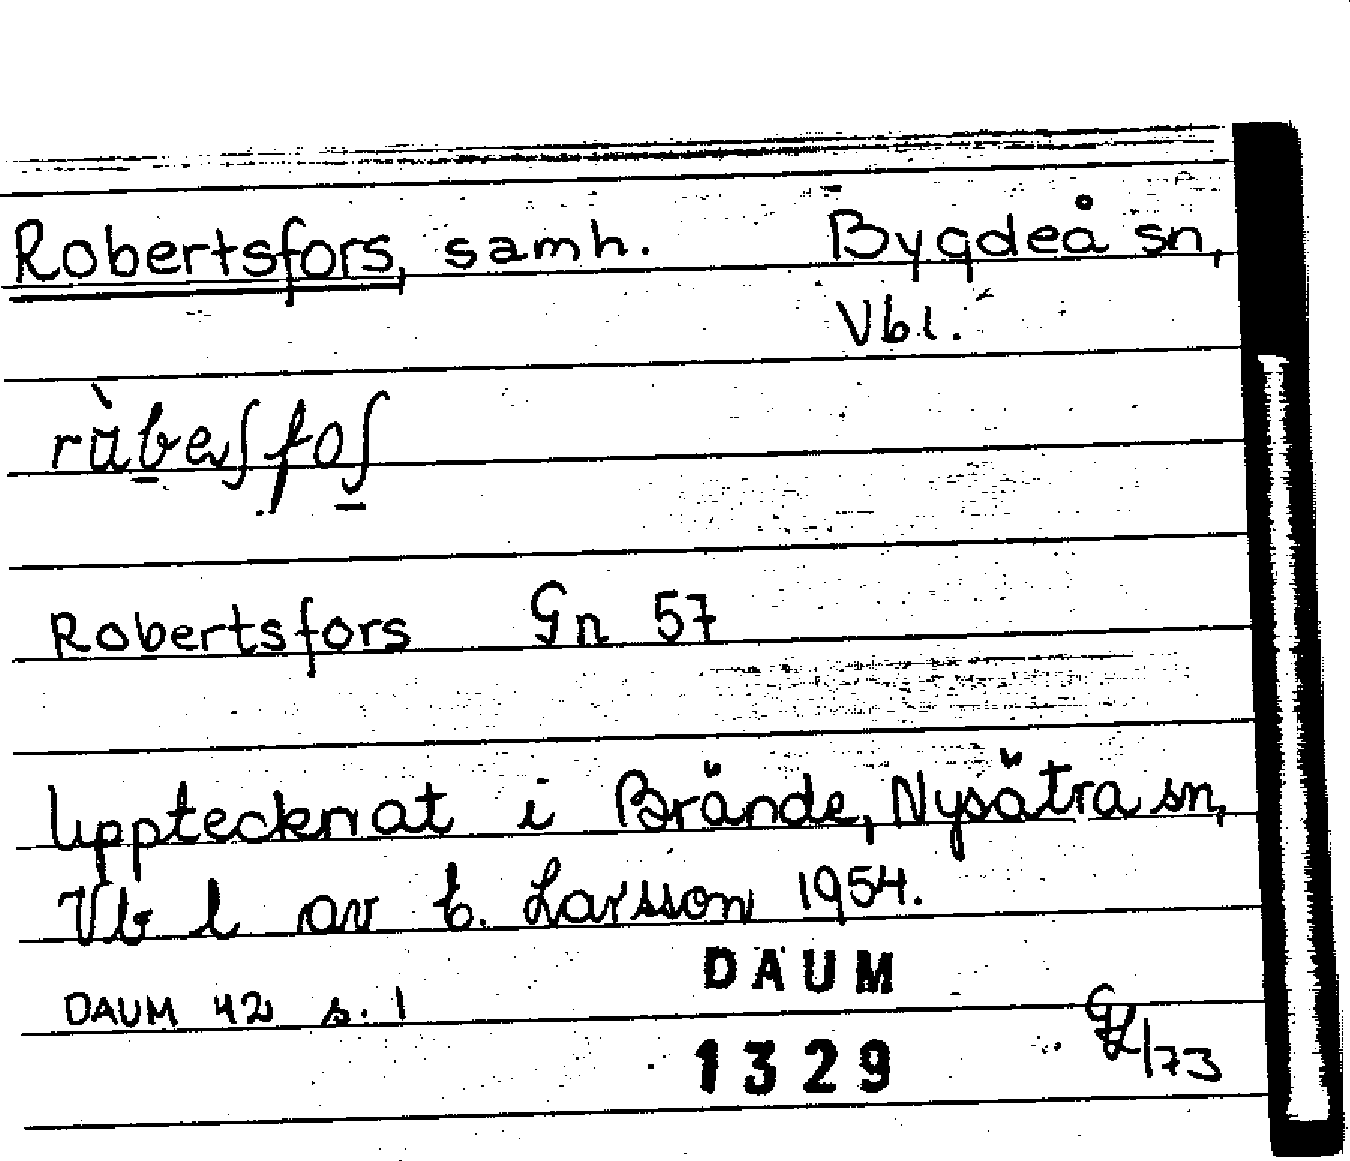 Robertsfors, samh. Bygdeå sn,
Vbl.
Robertsfors Gn 57
Upptecknat i Brände, Nysätra sn,
Vb l av E. Larsson 1954.
DAUM 42 s. 1
DAUM
1329
/73